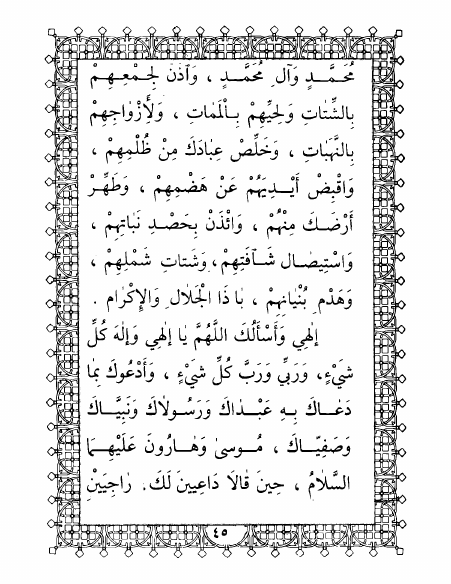 مُحَمَّدٍ وَآلِ مُحَمَّدٍ ، وَآذَنْ لِجَمْعِهِمْ
بِالشَّتَاتِ وَلِحَيِّهِمْ بِالْمَمَاتِ ، وَلِأَزْوَاجِهِمْ
بِالنَّهَبَاتِ ، وَخَلِّصْ عِبَادَكَ مِنْ ظُلْمِهِمْ ،
وَاقْبِضْ أَيْدِيَهُمْ عَنْ هَضْمِهِمْ ، وَطَهِّرْ
أَرْضَكَ مِنْهُمْ ، وَائْذَنْ بِحَصْدِ نَبَاتِهِمْ ،
وَاسْتِيصَالِ شَافَتِهِمْ، وَشَتَاتِ شَمْلِهِمْ ،
وَهَدْمِ بُنْيَانِهِمْ ، يَا ذَا الْجَلَالِ وَالْإِكْرَامِ .
إِلٰهِي وَأَسْأَلُكَ اللَّهُمَّ يَا إِلٰهِي وَإِلٰهَ كُلِّ
شَيْءٍ، وَرَبِّي وَرَبَّ كُلِّ شَيْءٍ ، وَأَدْعُوكَ بِمَا
دَعَاكَ بِهِ عَبْدَاكَ وَرَسُولَاكَ وَنَبِيَّاكَ
وَصَفِيَّاكَ ، مُوسىٰ وَهَارُونَ عَلَيْهِمَا
السَّلَامُ ، حِينَ قَالَا دَاعِيَيْنِ لَكَ. رَاجِيَيْنِ
٤٥